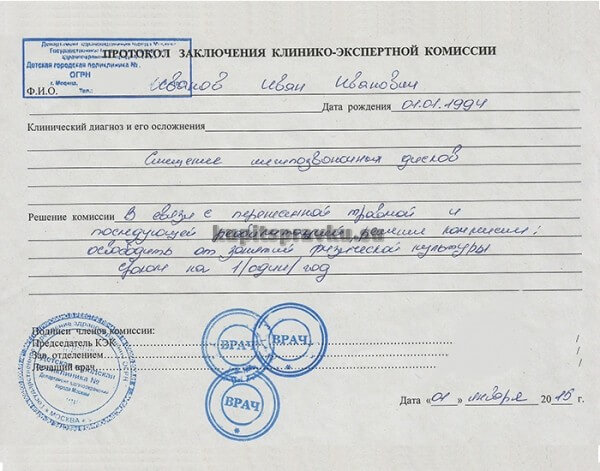 ПРОТОКОЛ ЗАКЛЮЧЕНИЯ КЛИНИКО-ЭКСПЕРТНОЙ КОМИССИИ
Детская городская поликлиника №
ОГРН
г. Москва, Тел.:
Ф.И.О. Иванов Иван Иванович
Дата рождения 01.01.1994
Клинический диагноз и его осложнения
Смещение межпозвоночных дисков
Решение комиссии В связи с перенесенной травмой и
последующей решили комиссии:
освободить от занятий физической культуры
сроком на 1/один/год
kupitspravku.su
Подписи членов комиссии:
Председатель КЭК
Зав. отделением
Лечащий врач
ВРАЧ
ВРАЧ
ВРАЧ
Дата «01» января 2015 г.
Департамент здравоохранения
города Москвы
МОСКВА